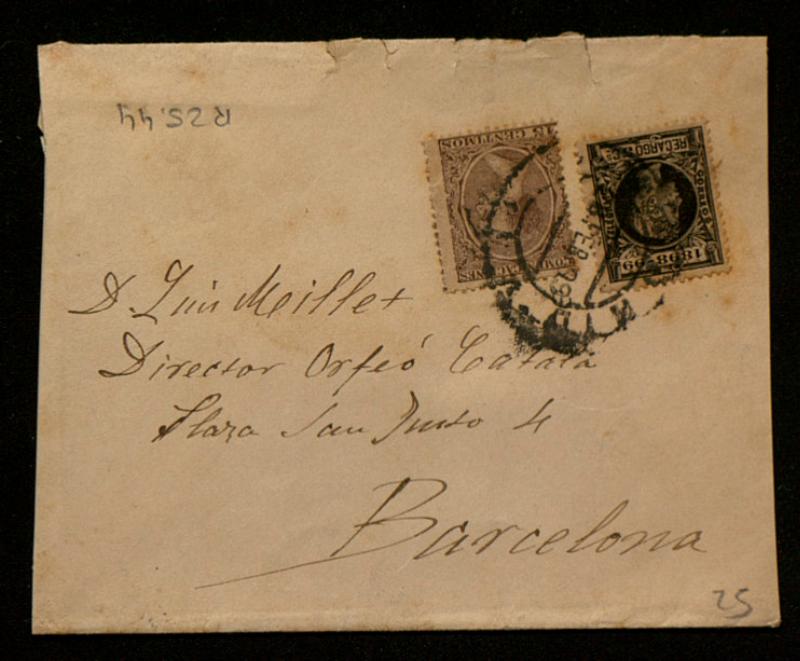 R25.44
15 CENTIMOS
COMUNICACIONES
RECARGO
5 CENTOS
1898-99
D. Luis Meillet
Director Orfeó Catalá
Plaza San Justo 4
Barcelona
25